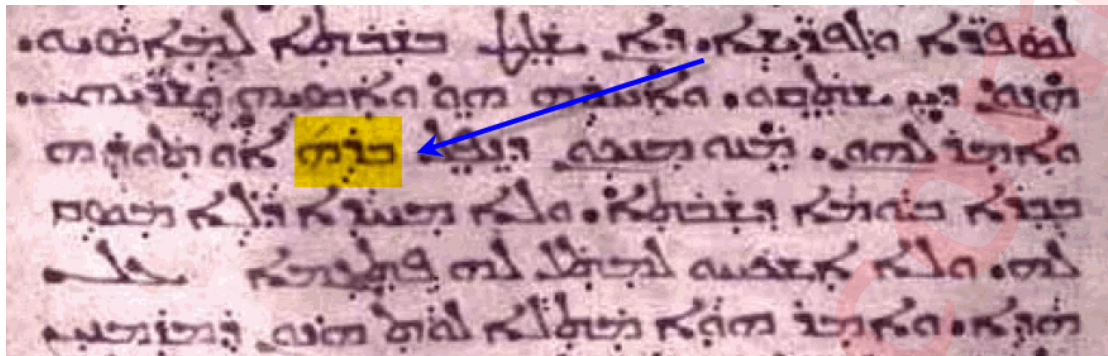 ܠܣܦܪܐ ܘܠܦܪܝܫܐ. ܕܐܢ ܫܠܝܛ ܒܫܒܬܐ ܠܡܐܣܝܘ.
ܗܢܘܢ ܕܝܢ ܫܬܩܘ. ܘܐܚܕܗ ܗܘ ܘܐܣܝܗ ܘܫܪܝܗܝ.
ܘܐܡܪ ܠܗܘܢ. ܡܢܘ ܡܢܟܘܢ ܕܢܦܠ ܒܪܗ ܐܘ ܬܘܪܗ
ܒܒܪܐ ܒܝܘܡܐ ܕܫܒܬܐ. ܘܠܐ ܡܚܕܐ ܕܠܐ ܡܣܩ
ܠܗ. ܘܠܐ ܐܫܟܚܘ ܠܡܬܠ ܠܗ ܦܬܓܡܐ ܥܠ
ܗܕܐ. ܘܐܡܪ ܗܘܐ ܡܬܠܐ ܠܘܬ ܗܢܘܢ ܕܡܙܡܢܝܢ